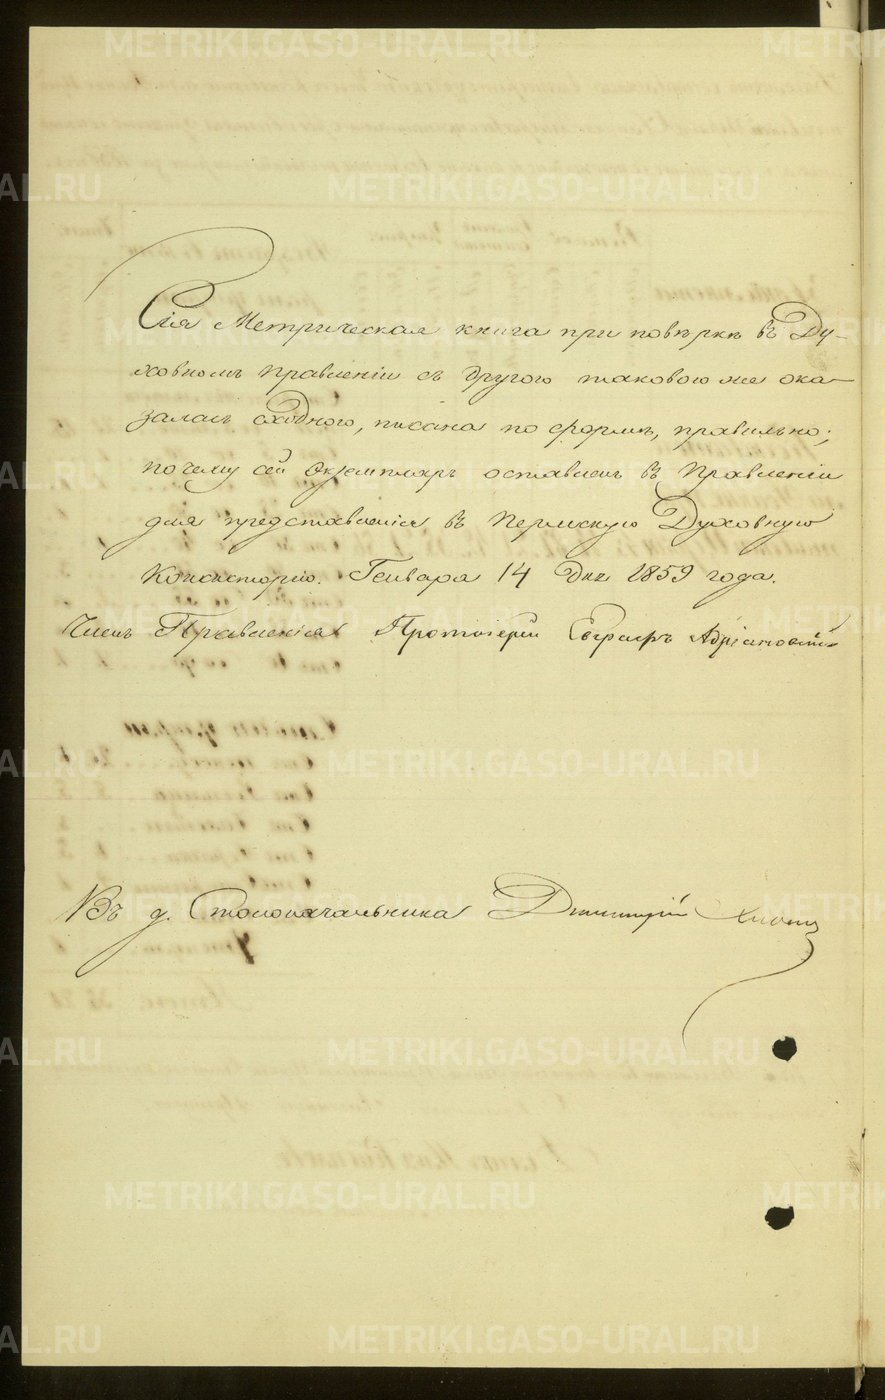 Сія Метрическая книга при повѣркѣ въ Ду-
ховномъ Правленіи съ другою таковою же ока-
залась сходною, писана по формѣ, правильно;
почему сей экземпляръ оставленъ въ Правленіи
для представленія въ Пермскую Духовную
Консисторію. Генваря 14 дня 1859 года.
Членъ Правленія Протоіерей Евграфъ
Въ д. Столоначальника Дмитрій
METRIKI.GASO-URAL.RU